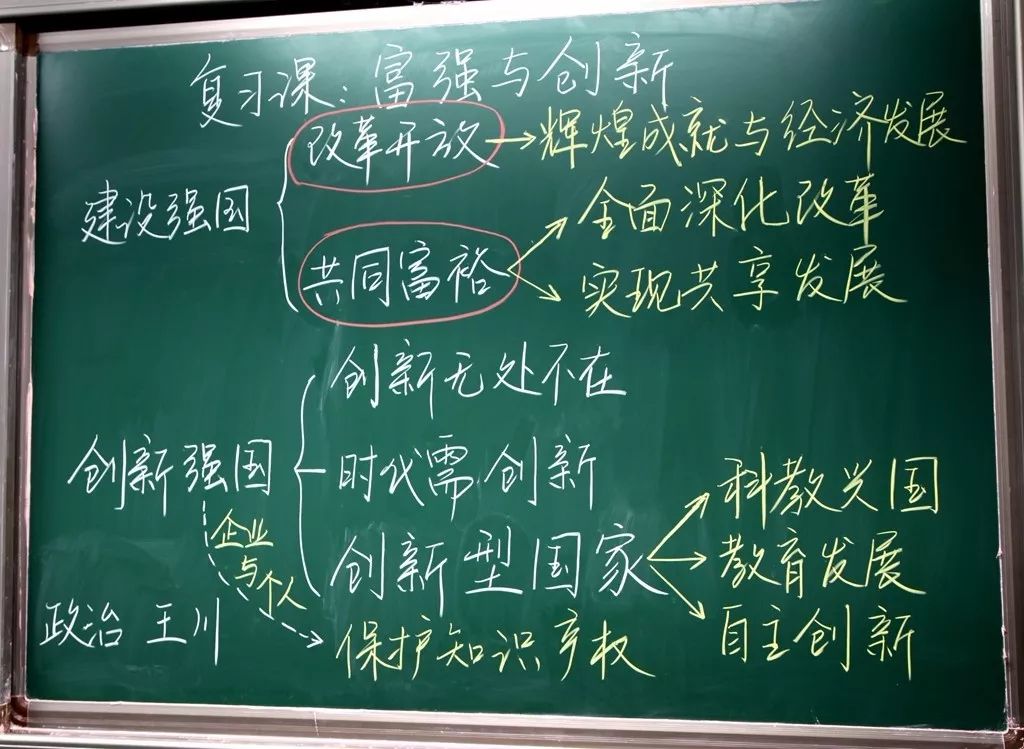 复习课：富强与创新
改革开放→辉煌成就与经济发展
建设强国
全面深化改革
共同富裕
实现共享发展
创新无处不在
创新强国
时代需创新
科教兴国
企业与个人
创新型国家
教育发展
政治 王川
自主创新
保护知识产权